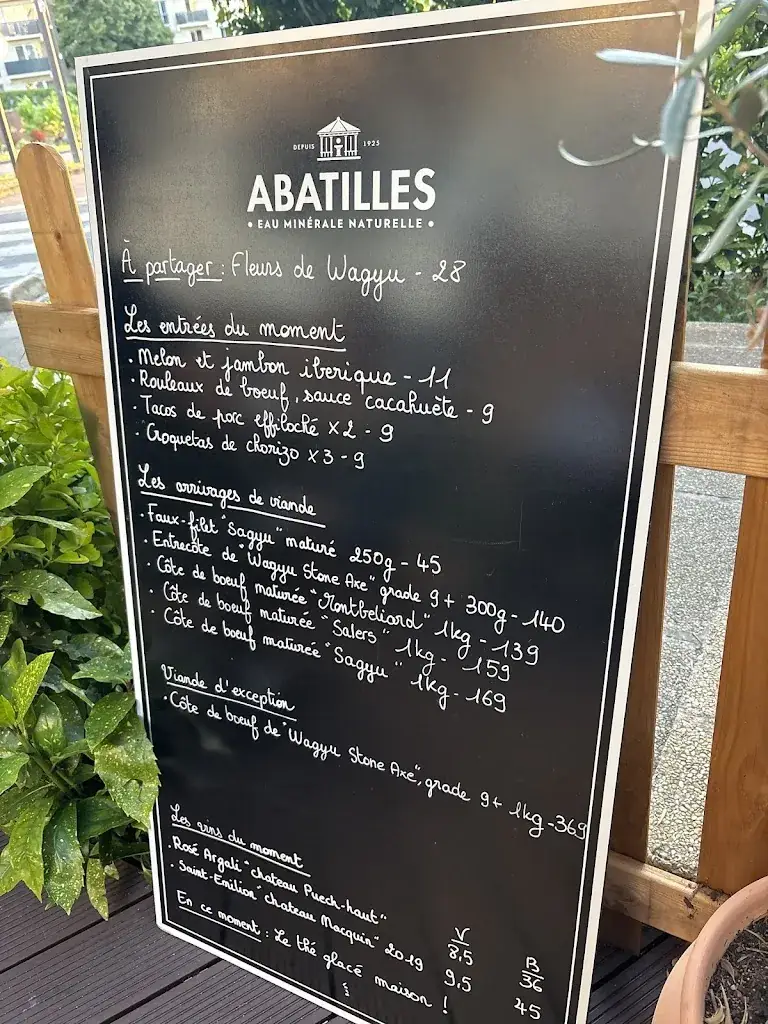 DEPUIS 1925
ABATILLES
• EAU MINÉRALE NATURELLE •
À partager : Fleurs de Wagyu - 28
Les entrées du moment
• Melon et jambon iberique - 11
• Rouleaux de boeuf, sauce cacahuète - 9
• Tacos de porc effiloché x2 - 9
• Croquetas de chorizo x3 - 9
Les arrivages de viande
• Faux-filet "Sagyu" maturé 250g - 45
• Entrecôte de "Wagyu Stone Axe" grade 9+ 300g - 140
• Côte de boeuf maturée "Montbeliard" 1kg - 139
• Côte de boeuf maturée "Salers" 1kg - 159
• Côte de boeuf maturée "Sagyu" 1kg - 169
Viande d'exception
• Côte de boeuf de "Wagyu Stone Axe", grade 9+ 1kg - 369
Les vins du moment
V B
• Rosé Argali "chateau Puech-haut" 8,5 36
• Saint-Emilion "chateau Macquin" 2019 9,5 45
En ce moment : Le thé glacé maison !